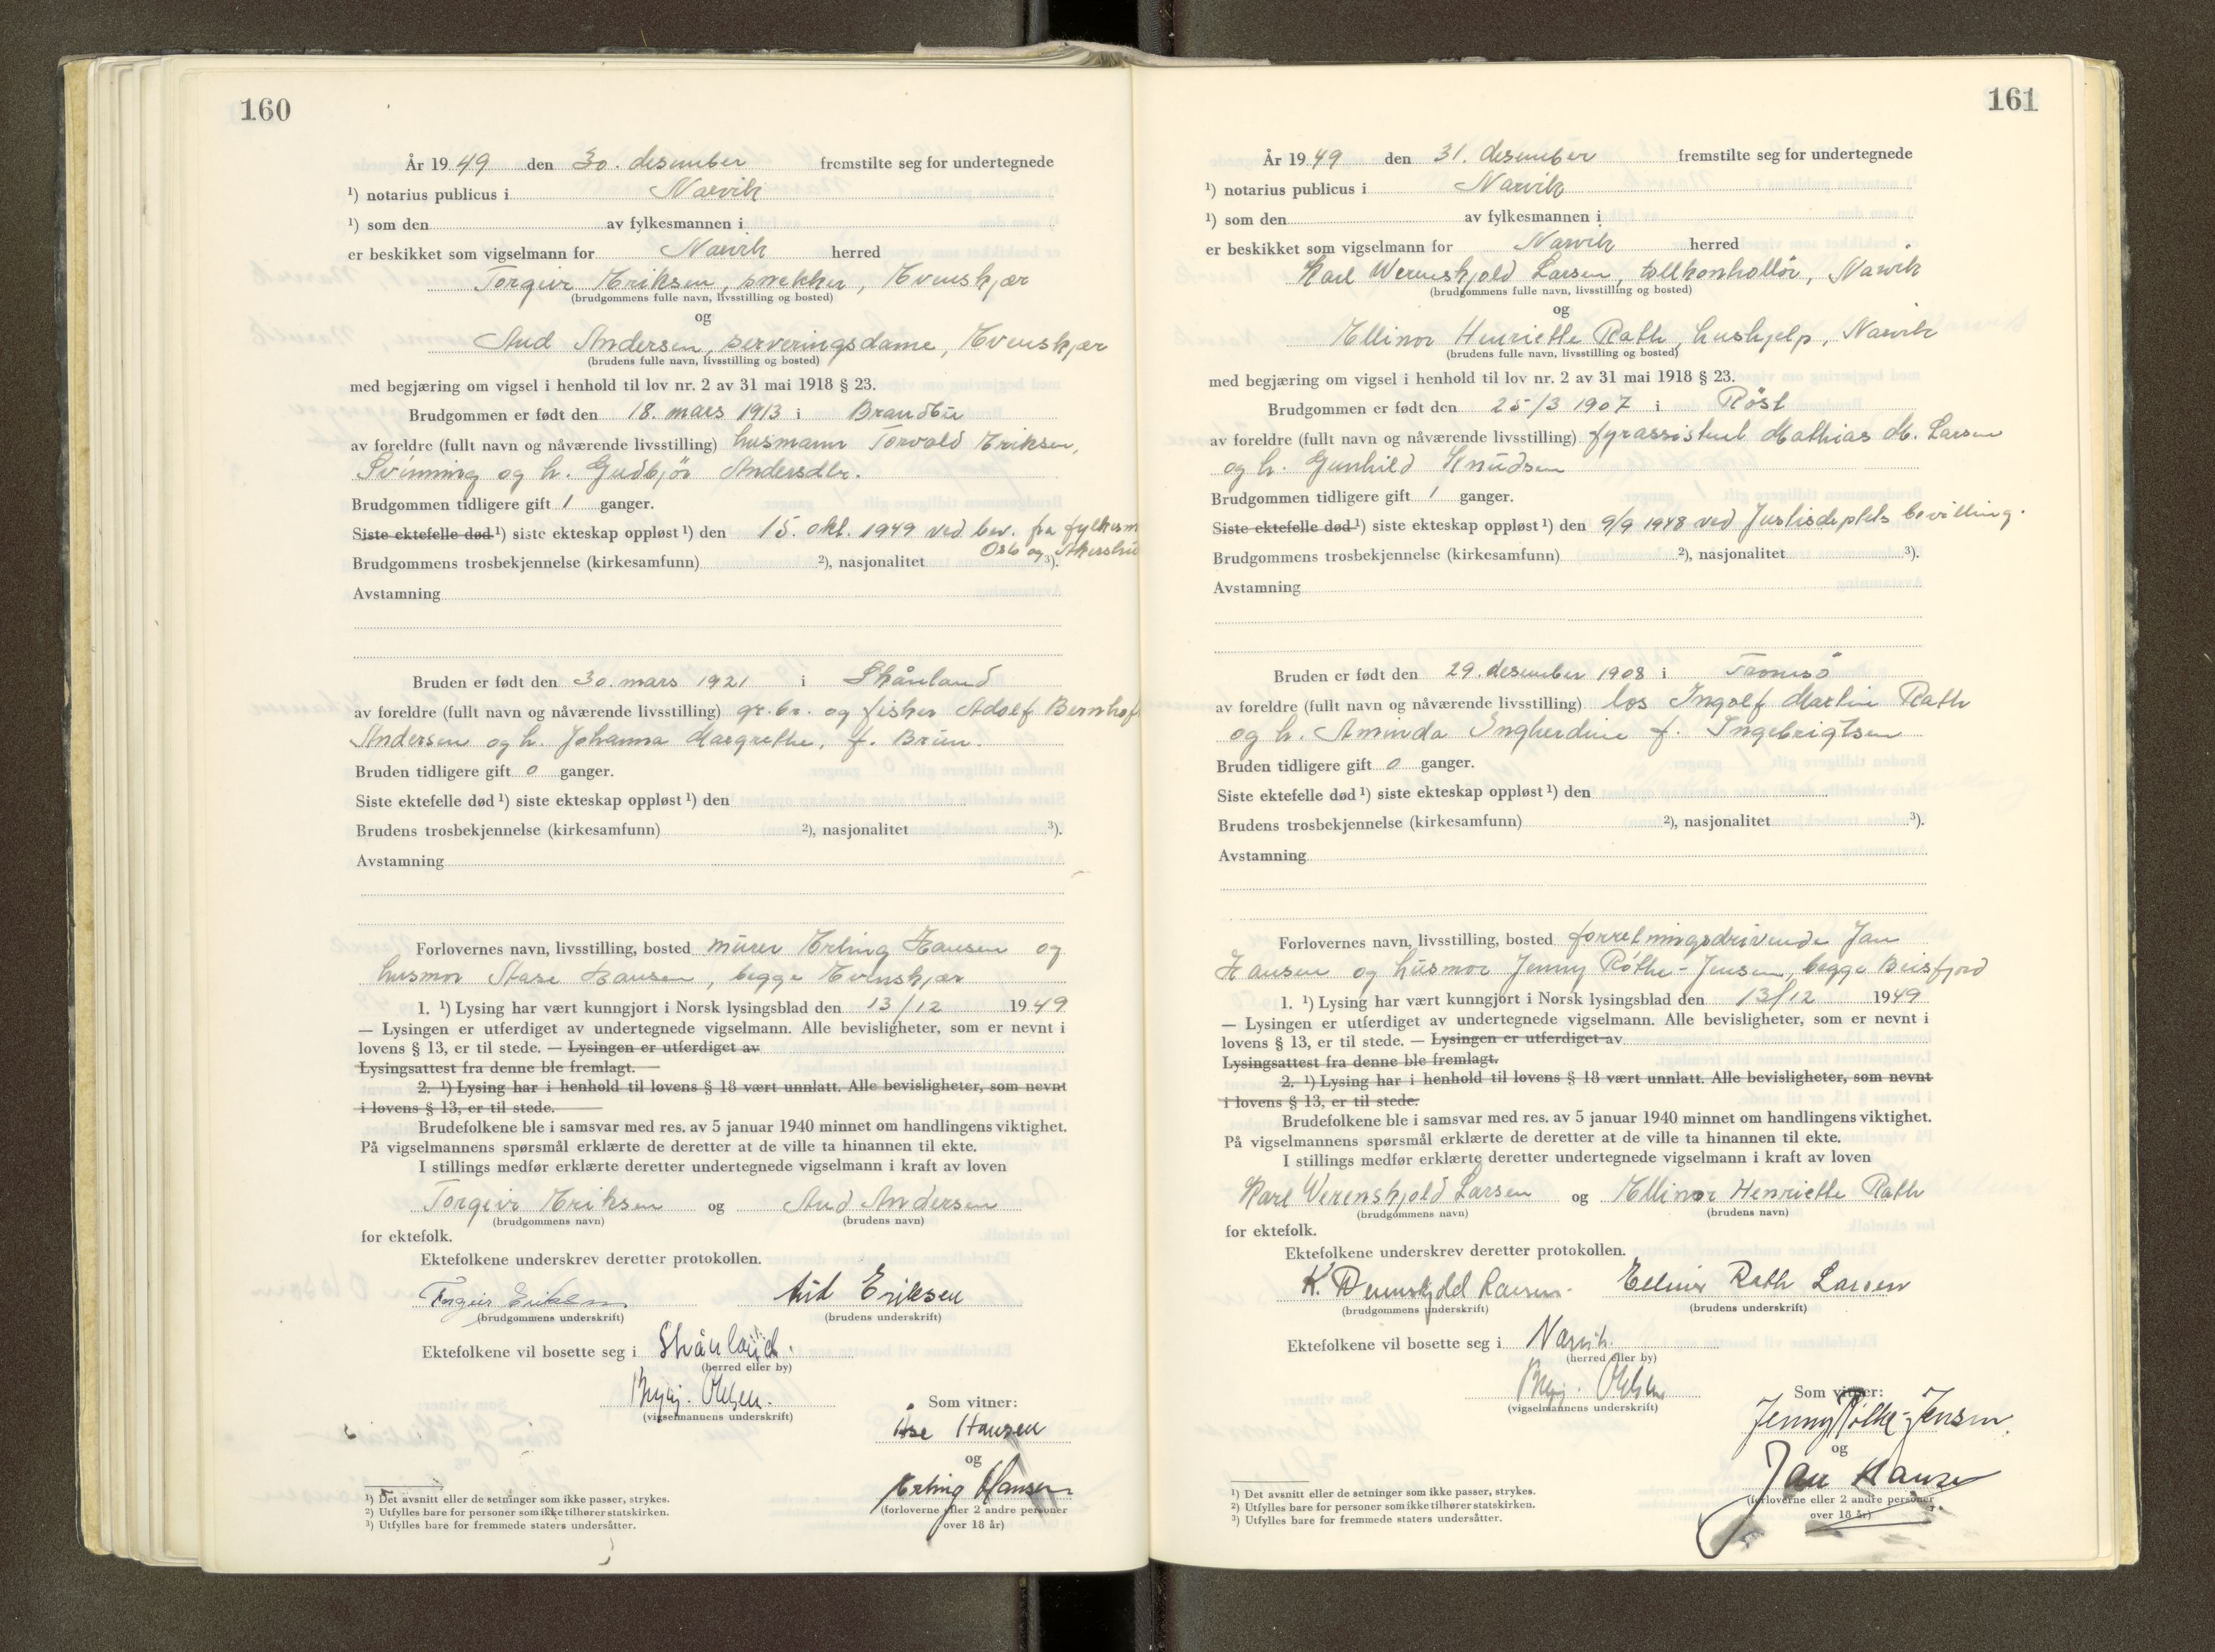 160
År 1949 den 30. desember fremstilte seg for undertegnede
¹) notarius publicus i Narvik
¹) som den av fylkesmannen i
er beskikket som vigselmann for Narvik herred
Torgeir Eriksen, snekker, Evenskjær
(brudgommens fulle navn, livsstilling og bosted)
og
Aud Andersen, serveringsdame, Evenskjær
(brudens fulle navn, livsstilling og bosted)
med begjæring om vigsel i henhold til lov nr. 2 av 31 mai 1918 § 23.
Brudgommen er født den 18. mars 1913 i Brandbu
av foreldre (fullt navn og nåværende livsstilling) husmann Torvald Eriksen,
Svinning og h. Gudbjør Andersdtr.
Brudgommen tidligere gift 1 ganger.
Siste ektefelle død ¹) siste ekteskap oppløst ¹) den 15. okt. 1949 ved bev. fra fylkesm
Oslo og Akershus
Brudgommens trosbekjennelse (kirkesamfunn) ²), nasjonalitet ³).
Avstamning
Bruden er født den 30. mars 1921 i Skånland
av foreldre (fullt navn og nåværende livsstilling) gr.br. og fisker Adolf Bernhoft
Andersen og h. Johanna Margrethe, f. Bruun.
Bruden tidligere gift 0 ganger.
Siste ektefelle død ¹) siste ekteskap oppløst ¹) den
Brudens trosbekjennelse (kirkesamfunn) ²), nasjonalitet ³).
Avstamning
Forlovernes navn, livsstilling, bosted murer Erling Hansen og
husmor Åase Hansen, begge Evenskjær
1. ¹) Lysing har vært kunngjort i Norsk lysingsblad den 13/12 1949
— Lysingen er utferdiget av undertegnede vigselmann. Alle bevisligheter, som er nevnt i
lovens § 13, er til stede. — Lysingen er utferdiget av
Lysingsattest fra denne ble fremlagt.
2. ¹) Lysing har i henhold til lovens § 18 vært unnlatt. Alle bevisligheter, som nevnt
i lovens § 13, er til stede.
Brudefolkene ble i samsvar med res. av 5 januar 1940 minnet om handlingens viktighet.
På vigselmannens spørsmål erklærte de deretter at de ville ta hinannen til ekte.
I stillings medfør erklærte deretter undertegnede vigselmann i kraft av loven
Torgeir Eriksen og Aud Andersen
(brudgommens navn) (brudens navn)
for ektefolk.
Ektefolkene underskrev deretter protokollen.
Torgeir Eriksen Aud Eriksen
(brudgommens underskrift) (brudens underskrift)
Ektefolkene vil bosette seg i Skånland.
(herred eller by)
Olsen.
(vigselmannens underskrift)
Som vitner:
Åse Hansen
og
Erling Hansen
(forloverne eller 2 andre personer
over 18 år)
¹) Det avsnitt eller de setninger som ikke passer, strykes.
²) Utfylles bare for personer som ikke tilhører statskirken.
³) Utfylles bare for fremmede staters undersåtter.
161
År 1949 den 31. desember fremstilte seg for undertegnede
¹) notarius publicus i Narvik
¹) som den av fylkesmannen i
er beskikket som vigselmann for Narvik herred
Karl Werenskjold Larsen, tollkontrollør, Narvik
(brudgommens fulle navn, livsstilling og bosted)
og
Ellinor Henriette Rath, hushjelp, Narvik
(brudens fulle navn, livsstilling og bosted)
med begjæring om vigsel i henhold til lov nr. 2 av 31 mai 1918 § 23.
Brudgommen er født den 25/3 1907 i Røst
av foreldre (fullt navn og nåværende livsstilling) fyrassistent Mathias M. Larsen
og h. Gunhild Knudsen
Brudgommen tidligere gift 1 ganger.
Siste ektefelle død ¹) siste ekteskap oppløst ¹) den 9/9 1948 ved Justisdeptets bevilling.
Brudgommens trosbekjennelse (kirkesamfunn) ²), nasjonalitet ³).
Avstamning
Bruden er født den 29. desember 1908 i Tromsø
av foreldre (fullt navn og nåværende livsstilling) los Ingolf Martin Rath
og h. Aminda Ingherdine f. Ingebrigtsen
Bruden tidligere gift 0 ganger.
Siste ektefelle død ¹) siste ekteskap oppløst ¹) den
Brudens trosbekjennelse (kirkesamfunn) ²), nasjonalitet ³).
Avstamning
Forlovernes navn, livsstilling, bosted forretningsdrivende Jan
Hansen og husmor Jenny Røthe-Jensen, begge Beisfjord
1. ¹) Lysing har vært kunngjort i Norsk lysingsblad den 13/12 1949
— Lysingen er utferdiget av undertegnede vigselmann. Alle bevisligheter, som er nevnt i
lovens § 13, er til stede. — Lysingen er utferdiget av
Lysingsattest fra denne ble fremlagt.
2. ¹) Lysing har i henhold til lovens § 18 vært unnlatt. Alle bevisligheter, som nevnt
i lovens § 13, er til stede.
Brudefolkene ble i samsvar med res. av 5 januar 1940 minnet om handlingens viktighet.
På vigselmannens spørsmål erklærte de deretter at de ville ta hinannen til ekte.
I stillings medfør erklærte deretter undertegnede vigselmann i kraft av loven
Karl Werenskjold Larsen og Ellinor Henriette Rath
(brudgommens navn) (brudens navn)
for ektefolk.
Ektefolkene underskrev deretter protokollen.
K. Werenskjold Larsen. Ellinor Rath Larsen
(brudgommens underskrift) (brudens underskrift)
Ektefolkene vil bosette seg i Narvik.
(herred eller by)
Olsen
(vigselmannens underskrift)
Som vitner:
Jenny Røthe-Jensen.
og
Jan Hansen
(forloverne eller 2 andre personer
over 18 år)
¹) Det avsnitt eller de setninger som ikke passer, strykes.
²) Utfylles bare for personer som ikke tilhører statskirken.
³) Utfylles bare for fremmede staters undersåtter.